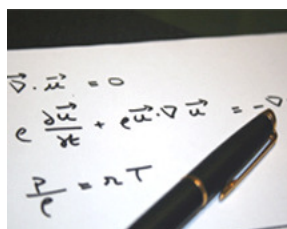 ∇⃗·u⃗ = 0
ρ ∂u⃗/∂t + ρu⃗·∇u⃗ = -∇
p/ρ = rT